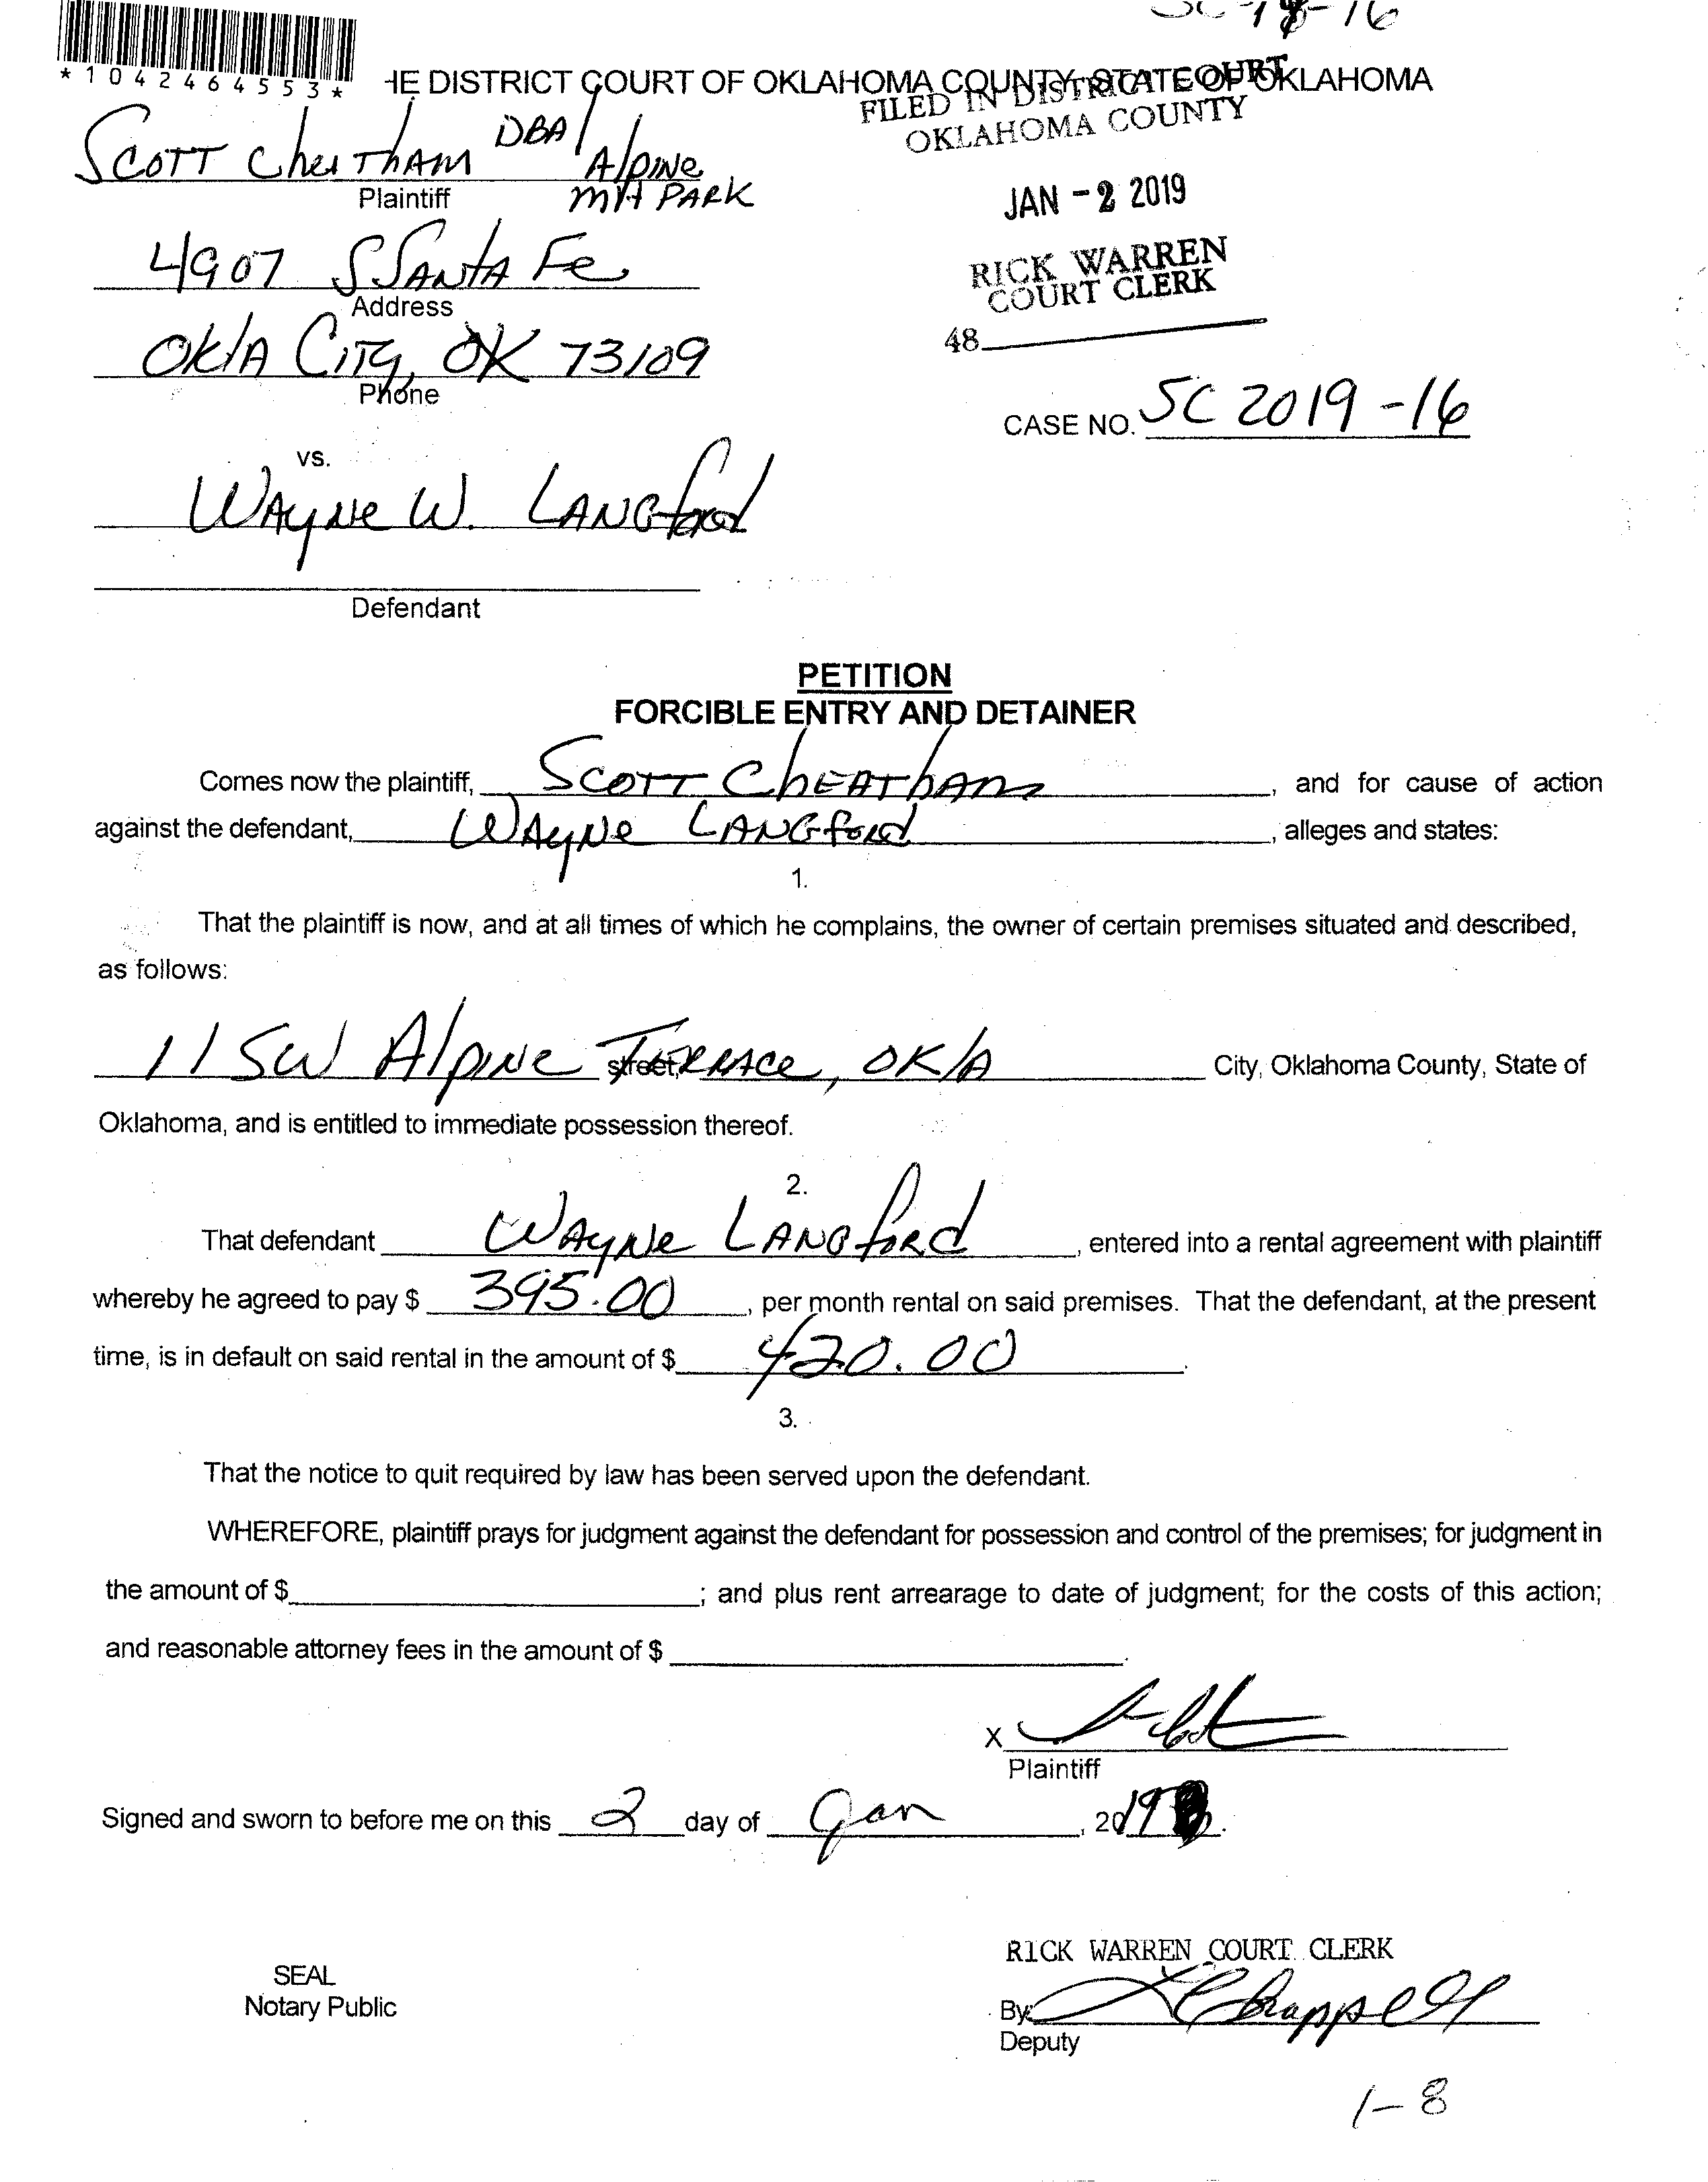 SC-19-16
*1042464553*
HE DISTRICT COURT OF OKLAHOMA COUNTY, STATE OF OKLAHOMA
FILED IN DISTRICT COURT
OKLAHOMA COUNTY
Scott Cheatham DBA/ Alpine
Plaintiff
MH PARK
JAN -2 2019
4907 S Santa Fe
Address
RICK WARREN
COURT CLERK
Okla City, OK 73109
Phone
48
CASE NO. SC 2019-16
vs.
Wayne W. Langford
Defendant
PETITION
FORCIBLE ENTRY AND DETAINER
Comes now the plaintiff, Scott Cheatham, and for cause of action
against the defendant, Wayne Langford, alleges and states:
1.
That the plaintiff is now, and at all times of which he complains, the owner of certain premises situated and described,
as follows:
11 SW Alpine street, Terrace, Okla City, Oklahoma County, State of
Oklahoma, and is entitled to immediate possession thereof.
2.
That defendant Wayne Langford, entered into a rental agreement with plaintiff
whereby he agreed to pay $ 395.00, per month rental on said premises. That the defendant, at the present
time, is in default on said rental in the amount of $ 420.00.
3.
That the notice to quit required by law has been served upon the defendant.
WHEREFORE, plaintiff prays for judgment against the defendant for possession and control of the premises; for judgment in
the amount of $ ; and plus rent arrearage to date of judgment; for the costs of this action;
and reasonable attorney fees in the amount of $ .
X
Plaintiff
Signed and sworn to before me on this 2 day of Jan, 2019.
RICK WARREN COURT CLERK
SEAL
Notary Public
By: Chappell
Deputy
1-8